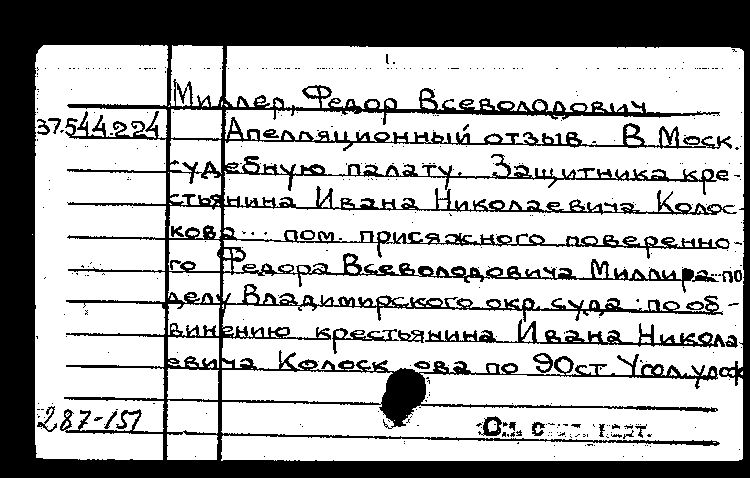 1.
Миллер, Федор Всеволодович
37.544.224 Апелляционный отзыв. В Моск.
судебную палату. Защитника кре-
стьянина Ивана Николаевича Колос-
кова... пом. присяжного поверенно-
го Федора Всеволодовича Миллира по
делу Владимирского окр. суда: по об-
винению крестьянина Ивана Никола
евича Колоск ова по 90ст. Угол.улож
287-151
См.